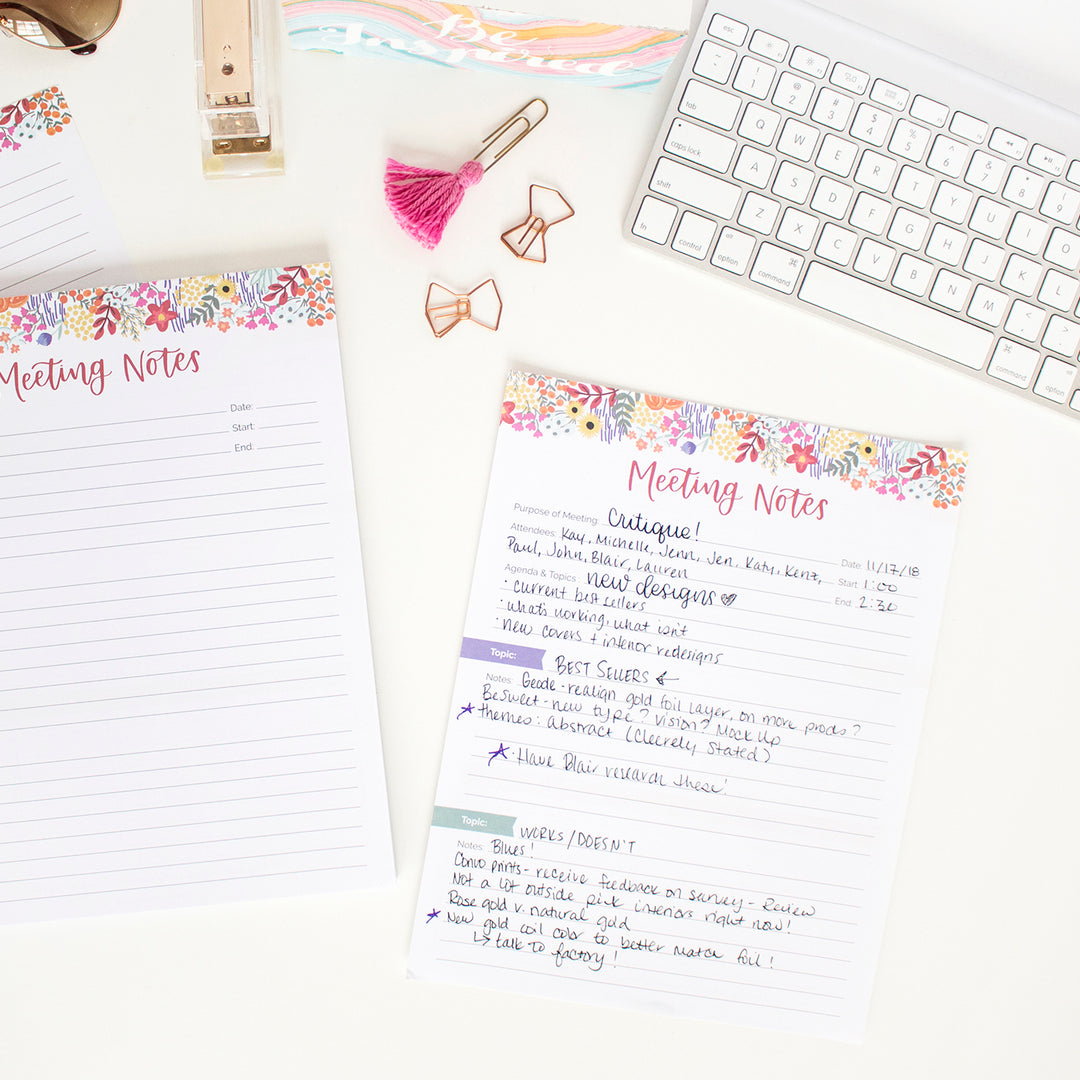 Be
Inspired
esc
! 1
@ 2
# 3
$ 4
% 5
^ 6
& 7
* 8
( 9
tab
Q W E R T Y U I O
caps lock
A S D F G H J K L
shift
Z X C V B N M < , > .
fn
control
option
command ⌘
command
option
Meeting Notes
Date:
Start:
End:
Meeting Notes
Purpose of Meeting: Critique!
Attendees: Kay, Michelle, Jenn, Jen, Katy, Kenz,
Paul, John, Blair, Lauren
Date: 11/17/18
Start: 1:00
End: 2:30
Agenda & Topics: new designs
· current best sellers
· what's working, what isn't
· new covers + interior redesigns
Topic: BEST SELLERS
Notes: Geode - realign gold foil layer, on more prods?
BeSweet - new type? vision? Mock Up
themes: abstract (Clecrely Stated)
· Have Blair research these!
Topic: WORKS/DOESN'T
Notes: Blues!
Convo prints - receive feedback on survey - Review
Not a lot outside pick interiors right now!
Rose gold v. natural gold
New gold coil color to better match foil!
↳ talk to factory!